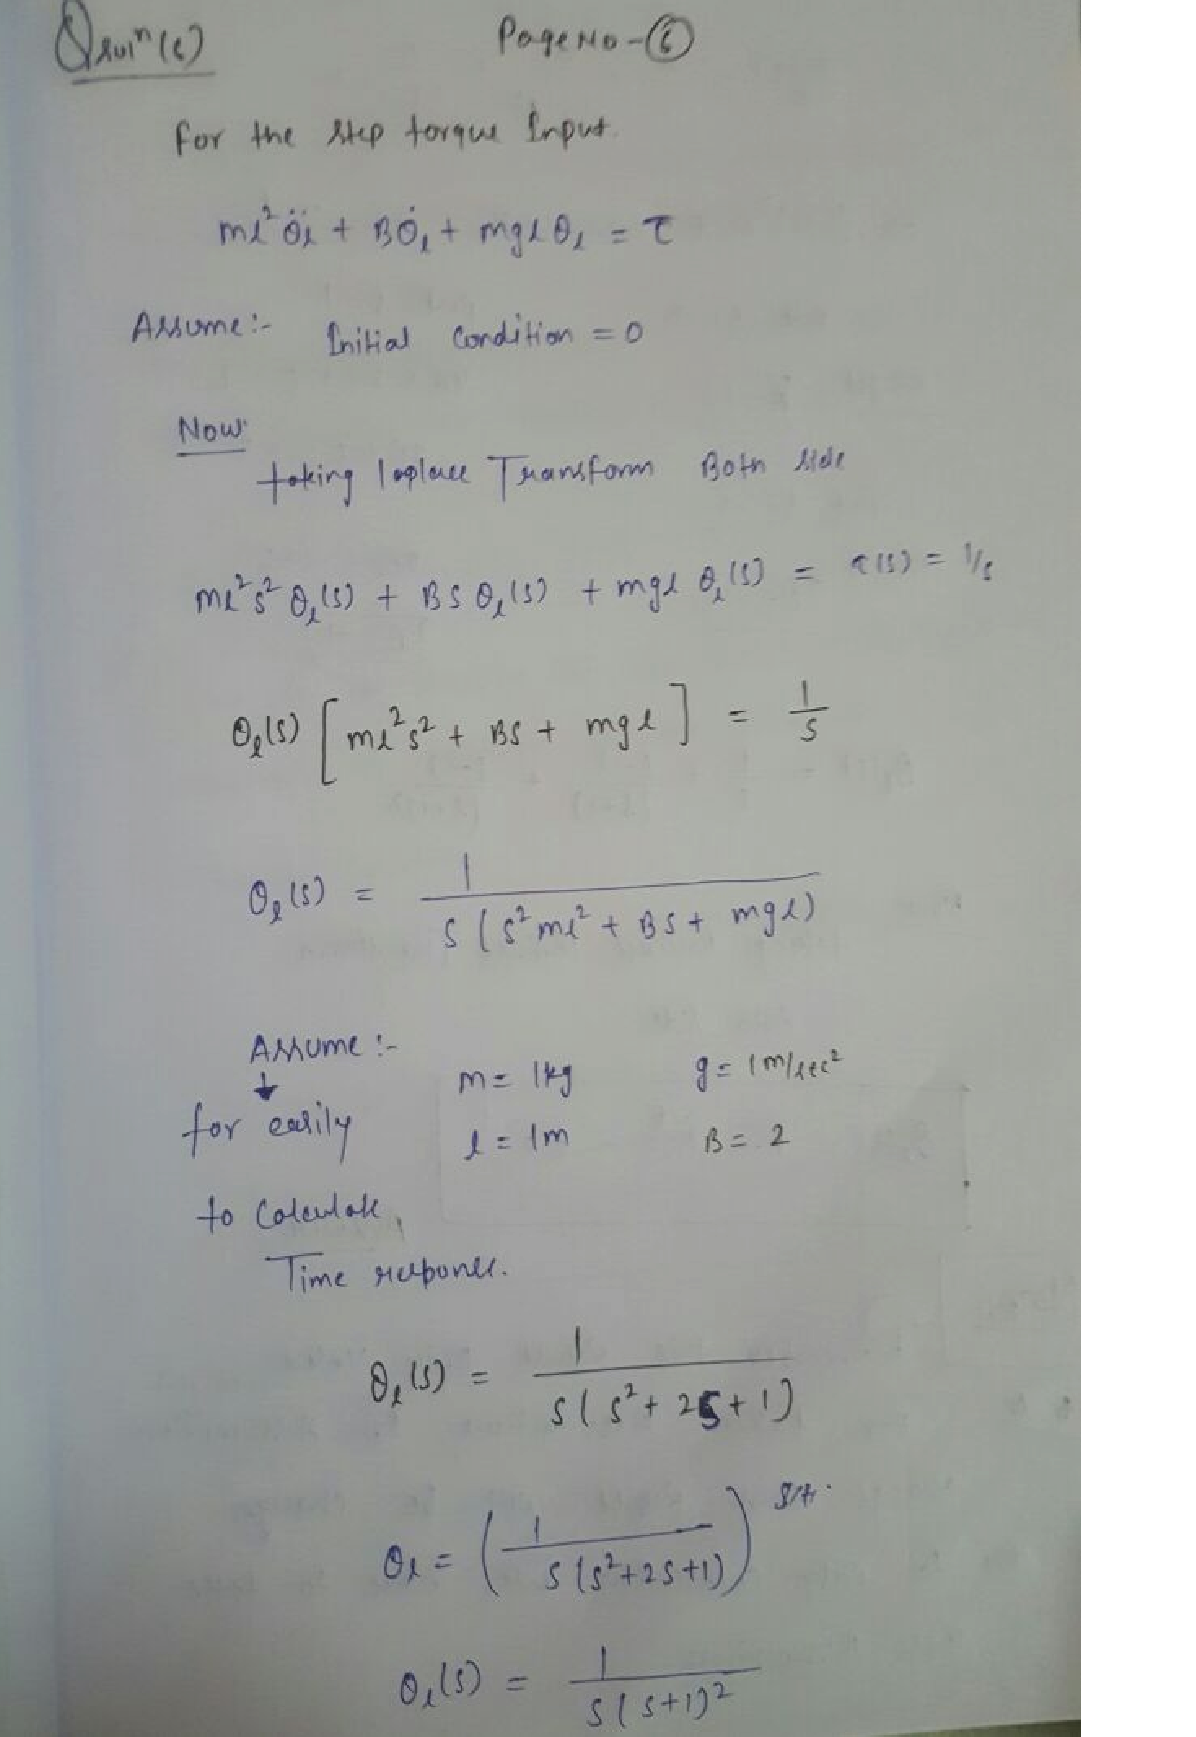 Quesⁿ(6)
Page No - ⑥
For the step torque Input.
ml² θ̈l + Bθ̇l + mglθl = τ
Assume:- Initial Condition = 0
Now
taking laplace Transform Both side
ml²s² θl(s) + BS θl(s) + mgl θl(s) = τ(s) = 1/s
θl(s) [ml²s² + BS + mgl] = 1/s
θl(s) = 1/(s(s²ml² + BS + mgl))
Assume :-
m = 1kg g = 1m/sec²
for easily
l = 1m B = 2
to Calculate,
Time response.
θl(s) = 1/(s(s²+ 2s+ 1)
θl = (1/(s(s²+2s+1))
θl(s) = 1/(s(s+1)²